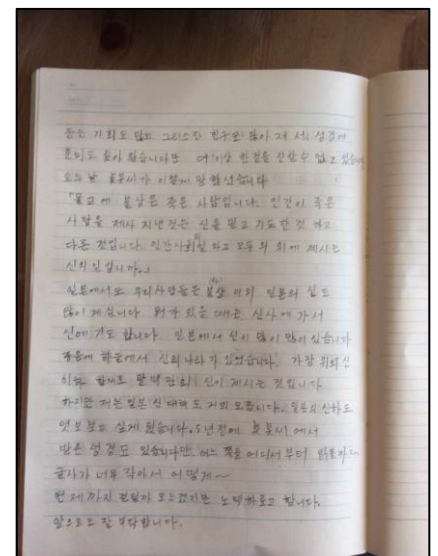 듣는 기회도 많고 그리스찬 친구도 많아 저 서 성경에
흥미도 솟아 왔습니다만 더 이상 한걸음 진할 수 없고 있습니다
오늘 날 목사가 이렇게 말했었습니다
「불교에 불상은 죽은 사람입니다. 인간이 죽은
사람을 제사 지낸것는 신을 믿고 기도한 것 하고
다른 것입니다. 인간사회 하고 모두의 위에 계시는
신의 입니다.」
일본에서도 우리사람들은 불상 이외 일본의 신도
많이 계십니다. 뭔가 있을 때곧 신사에 가서
신에 기도 합니다. 일본에서 신이 많이 많이 있습니다
처음에 하늘에서 신의 나라가 있었습니다. 가장 위의 신
이하 팔백만의 신이 계시는 것입니다
하지만 저는 일본 신 대해도 거의 모릅니다. 일본의 신하도
엿보보고 싶게 됐습니다. 5년전에 에서
받은 성경도 있습니다만 어느 쪽을 어디서 부터 읽을까~
글자가 너무 작아서 어떻게~
언제까지 모르겠지만 노력하로고 합니다.
앞으로도 잘 부탁합니다.